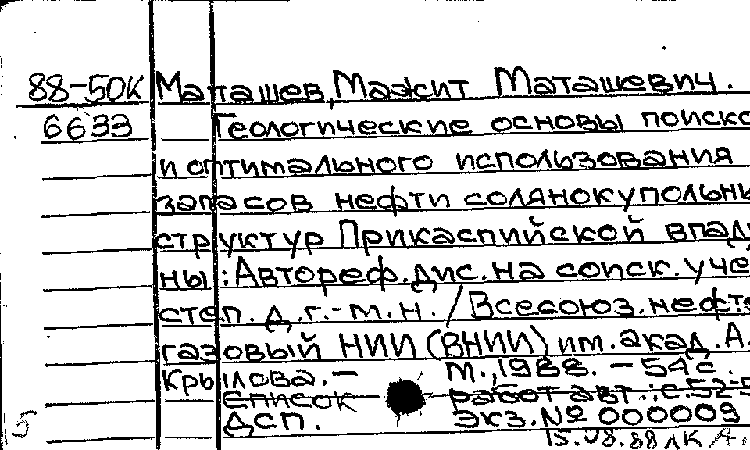 88-50К Маташев, Мажит Маташевич.
6633 Геологические основы поиско
и оптимального использования
запасов нефти солянокупольны
структур Прикаспийской впади
ны : Автореф. дис. на соиск. уче
степ. д. г.-м. н. / Всесоюз. нефте
газовый НИИ (ВНИИ) им. акад. А.
Крылова. - М., 1988. - 54 с.
Список работ авт.: с. 52-5
ДСП. Экз. № 000009
15.08.88 ЛК А.